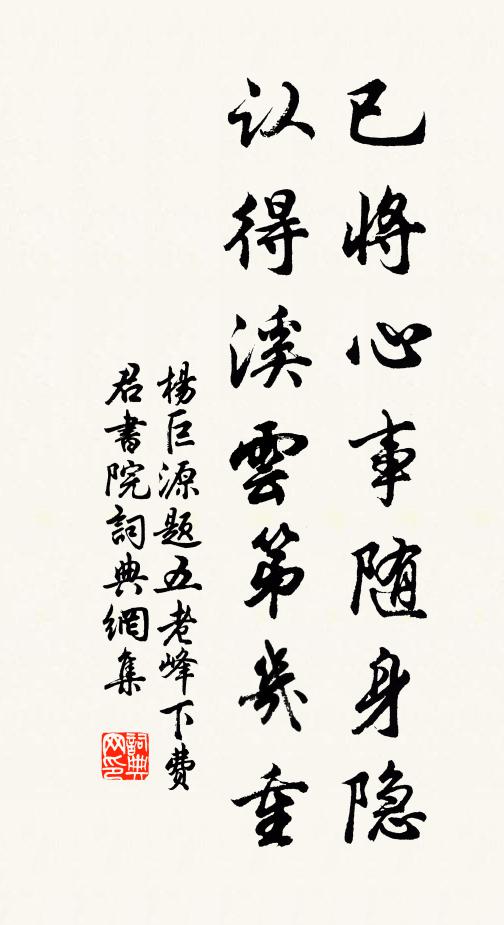 已将心事随身隐
认得溪雲第幾重
楊巨源题五老峰下费
君書院詞典網集
詞典
网印